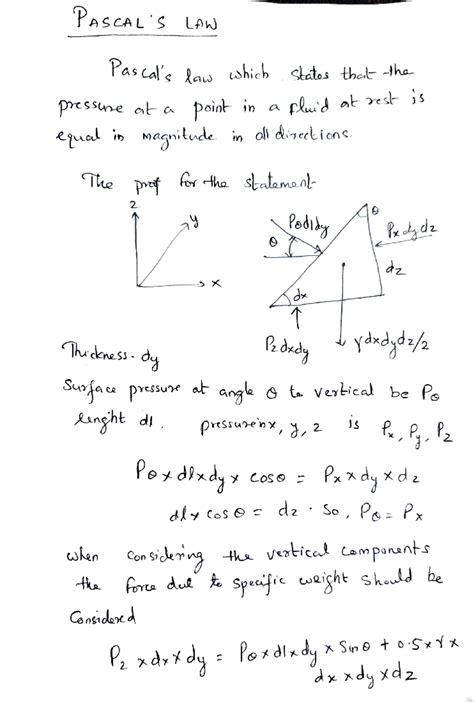 PASCAL'S LAW
Pascal's law which states that the
pressure at a point in a fluid at rest is
equal in magnitude in all directions.
The prof for the statement
z
y
x
Pθdldy
θ
θ
Pxdydz
dz
dx
Pzdxdy
γdxdydz/2
Thickness - dy
Surface pressure at angle θ to vertical be Pθ
lenght dl. pressure in x, y, z is Px, Py, Pz
Pθ x dl x dy x cosθ = Px x dy x dz
dl x cosθ = dz . So, Pθ = Px
when considering the vertical components
the force due to specific weight should be
Considered
Pz x dx x dy = Pθ x dl x dy x Sinθ + 0.5 x γ x
dx x dy x dz